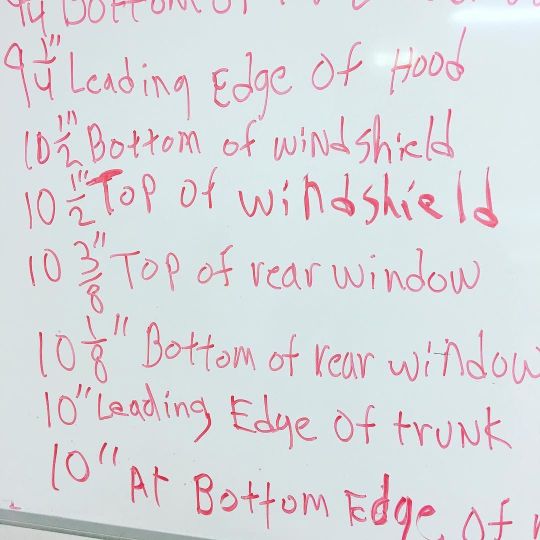 9¼" Leading Edge Of Hood
10½" Bottom of windshield
10½" Top of windshield
10 3/8" Top of rear window
10 1/8" Bottom of rear window
10" Leading Edge Of trunk
10" At Bottom Edge of